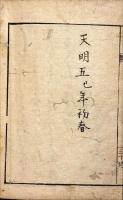 天明五巳年初春